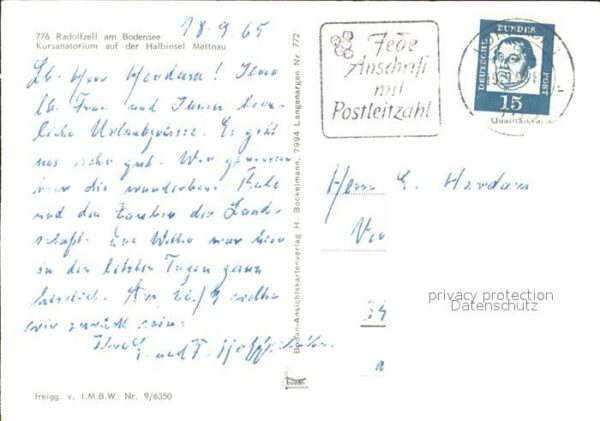 18.9.65
776 Radolfzell am Bodensee
Kursanatorium auf der Halbinsel Mettnau
Lb. Herr Herdam! Ihrer
lb. Frau und Ihnen herz-
liche Urlaubsgrüsse. Es geht
uns sehr gut. Wir geniessen
hier die wunderbare Ruhe
und den Zauber der Land-
schaft. Das Wetter war hier
in den letzten Tagen ganz
herrlich. Am 26/9 wollen
wir zurück sein.
Ihre
und
freigg. v. I.M.B.W. Nr. 9/6350
Bodan-Ansichtskartenverlag H. Bockelmann, 7994 Langenargen Nr. 772
Jede
Anschrift
mit
Postleitzahl
DEUTSCHE BUNDESPOST
15
Herrn E. Herdam
34
privacy protection
Datenschutz